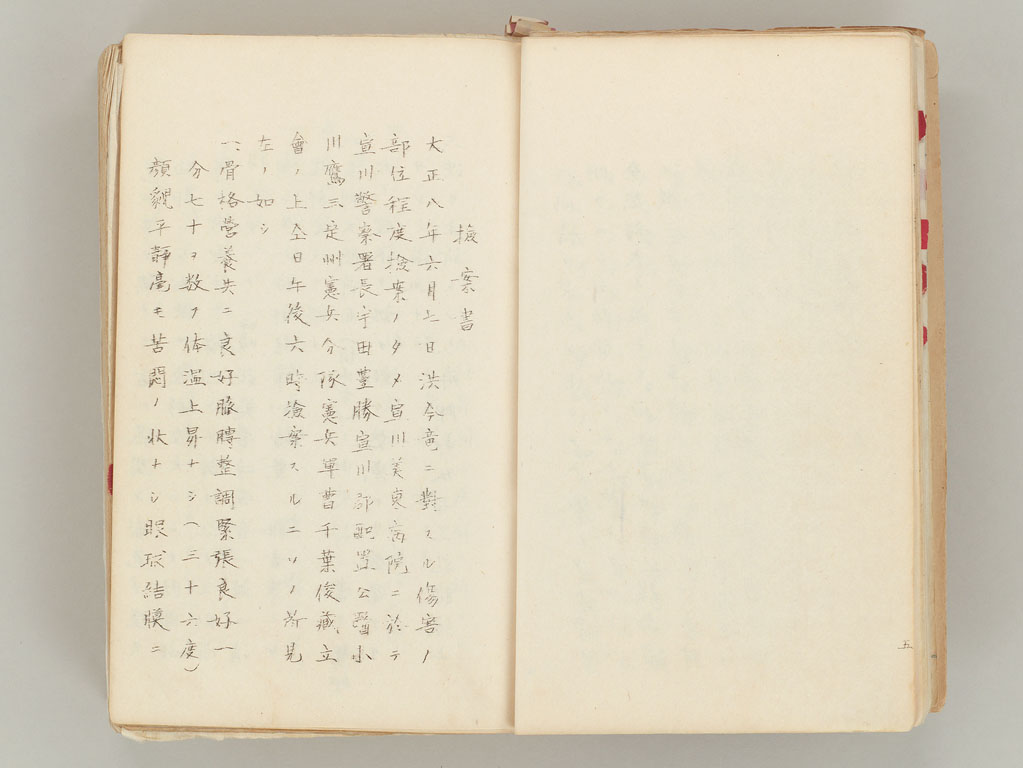 五
撿案書
大正八年六月七日洪今竜ニ對スル傷害ノ
部位程度撿案ノタメ宣川美東病院ニ於テ
宣川警察署長宇田豊勝宣川郡配置公醫小
川鷹三定州憲兵分隊憲兵軍曹千葉俊藏立
會ノ上仝日午後六時撿案スルニソノ所見
左ノ如シ
一、骨格營養共ニ良好脈膊整調緊張良好一
分七十ヲ数ヲ体温上昇ナシ（三十六度）
顏貌平靜毫モ苦悶ノ状ナシ眼球結膜ニ